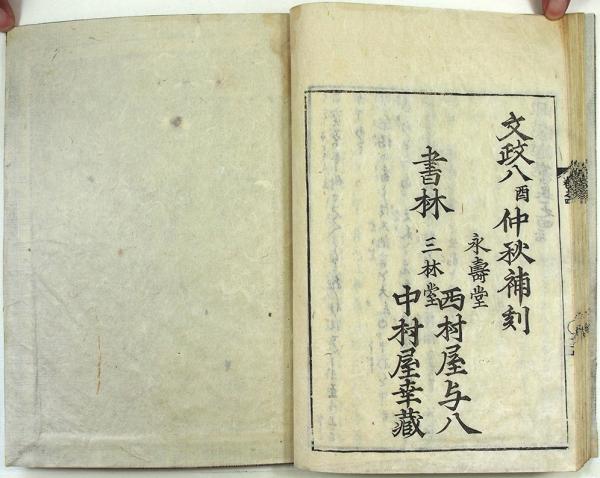 文政八酉仲秋補刻
永壽堂
西村屋与八
書林
三林堂
中村屋幸藏